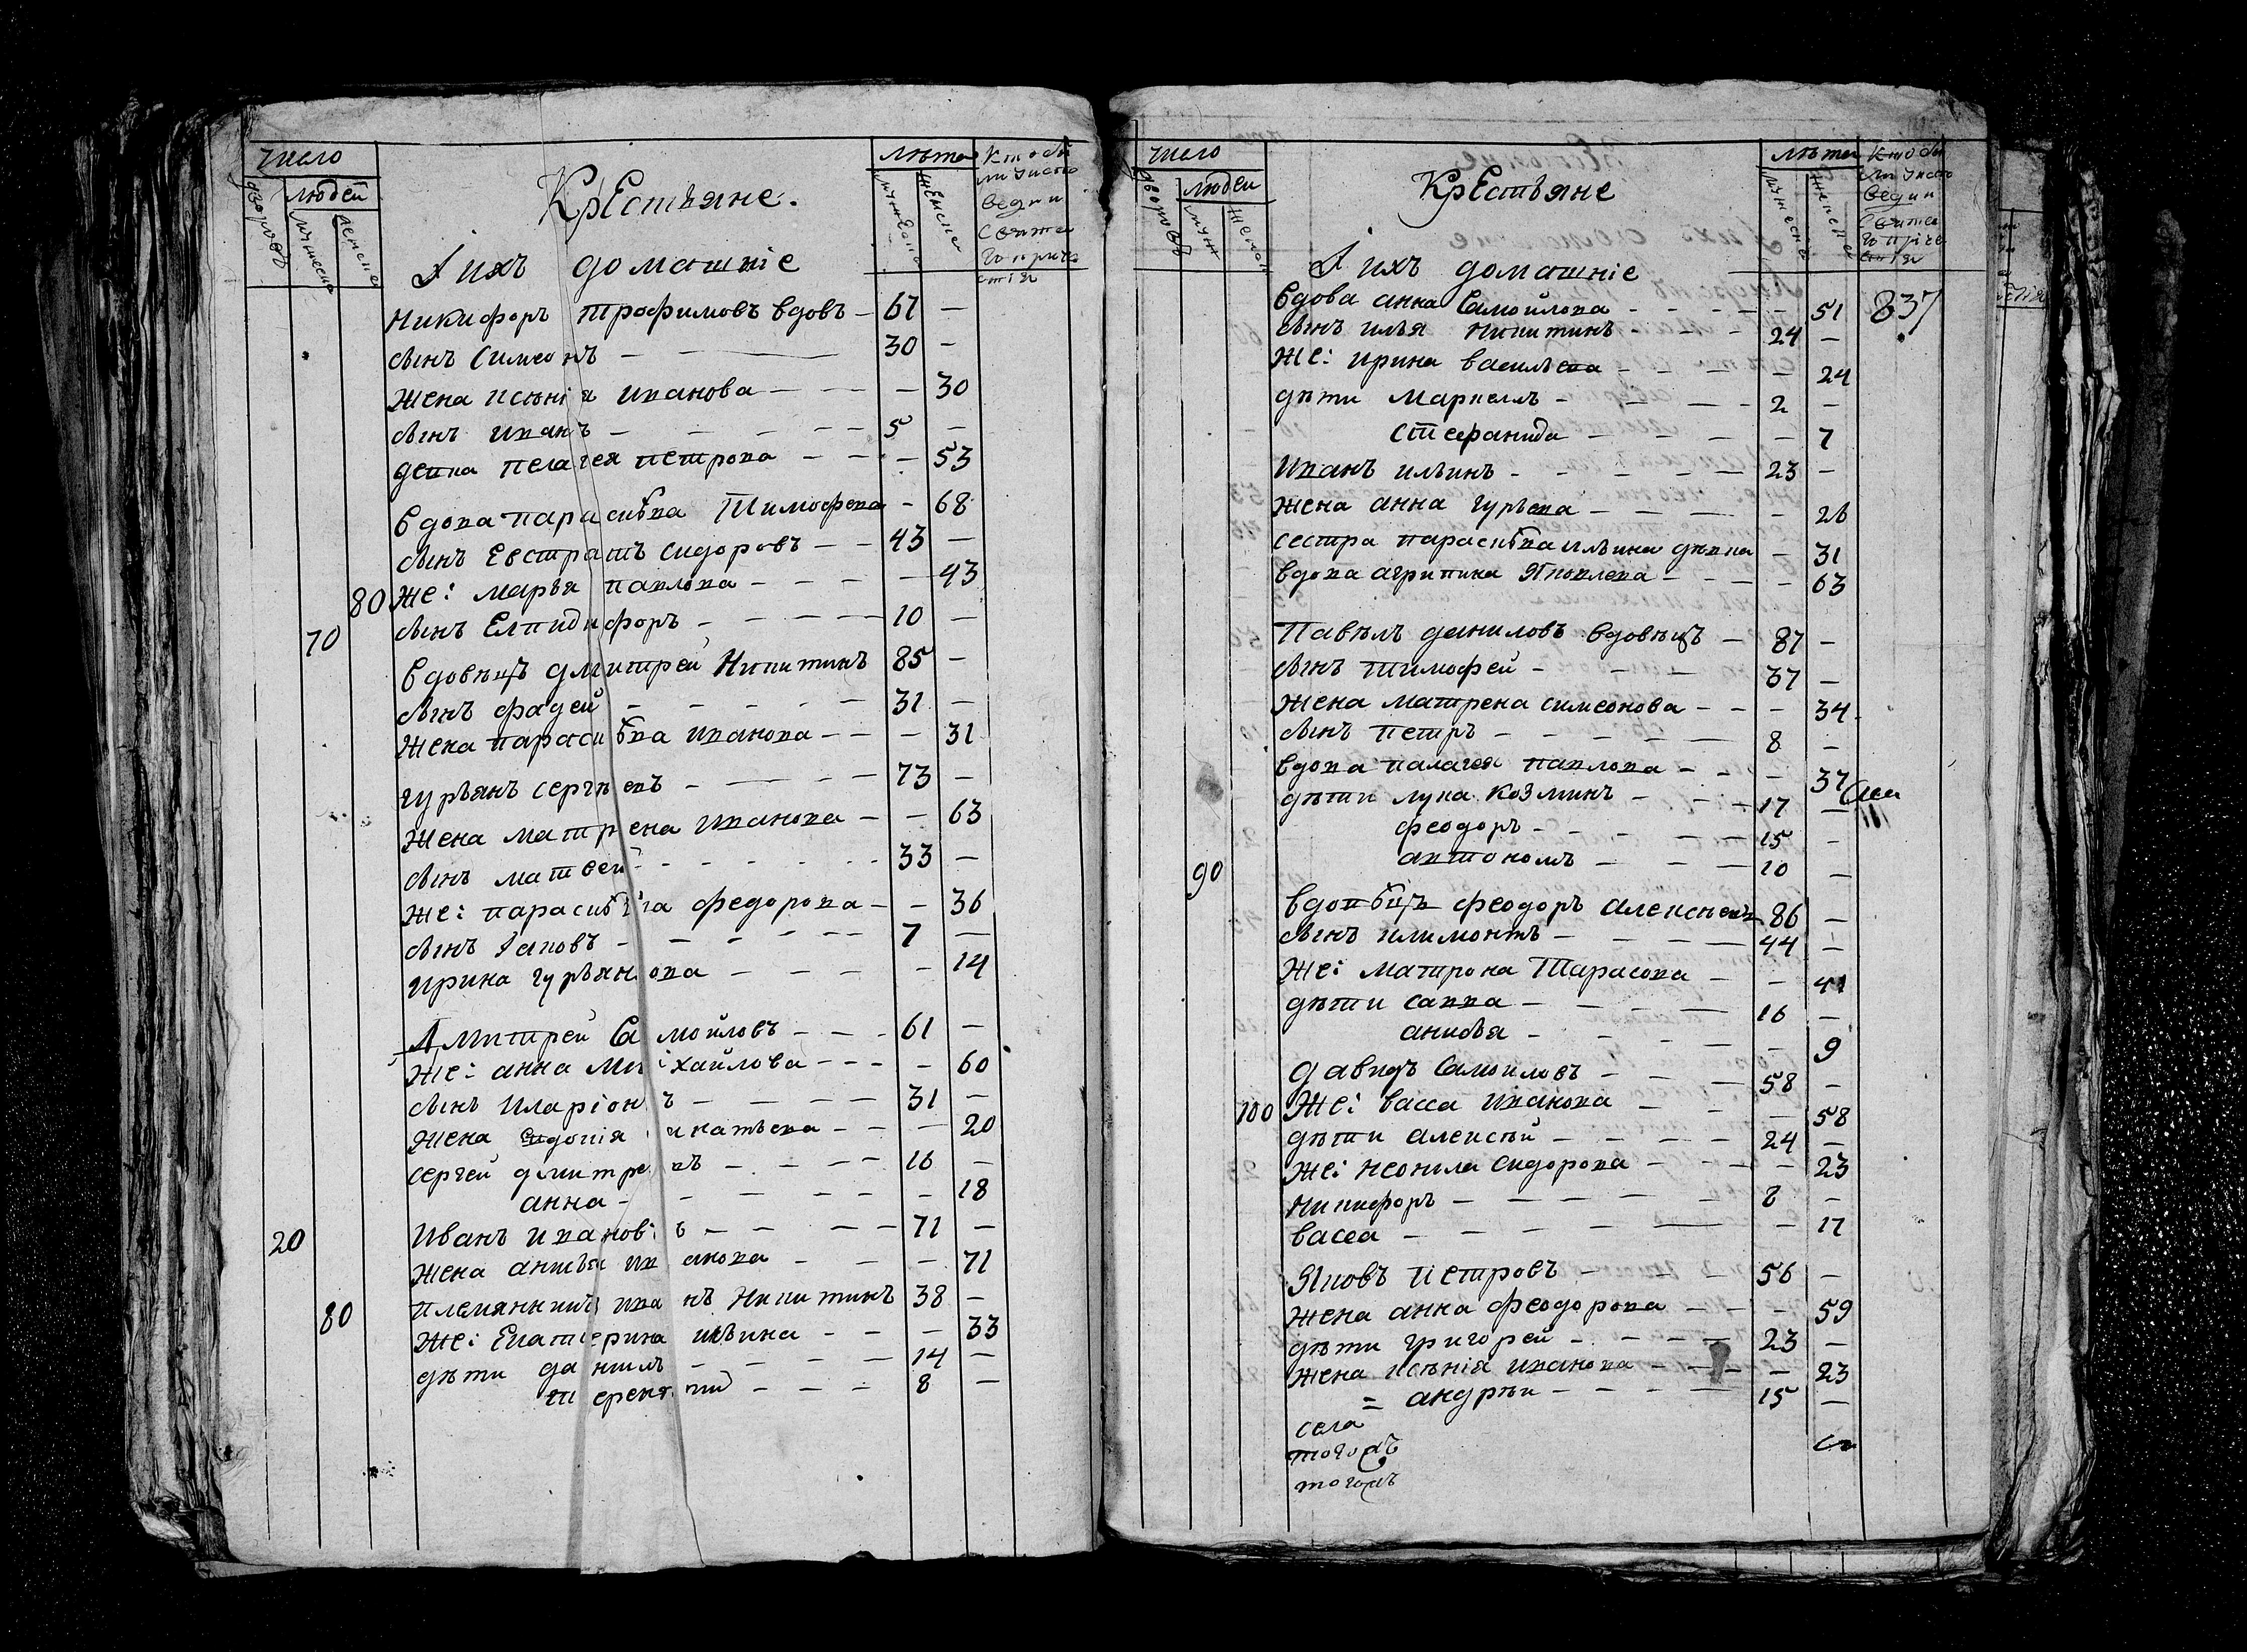 число
людей
дворовъ
мужеска
женска
Крестьяне.
І ихъ домашніе
лѣта
мужеска
женска
Кто бы
ли у испо
веди и
Свята
го прича
стія
Никифоръ трофимовъ вдовъ — 67 —
сынъ Симеонъ — 30 —
жена ксѣнія иванова — — 30
сынъ иванъ — 5 —
девка пелагея петрова — — 53
вдова параскѣва Тимофева — 68
сынъ Евстратъ сидоровъ — 43 —
80 же: марья павлова — — 43
70 сынъ Елпидифоръ — 10 —
вдовѣцъ дмитрей Никитинъ 85 —
сынъ фадей — 31 —
жена параскѣва иванова — — 31
гурьянъ сергѣевъ — 73 —
жена матрена иванова — — 63
сынъ матвей — 33 —
же: параскѣва федорова — — 36
сынъ Іаковъ — 7 —
ирина гурьянова — — 14
Дмитрей Самойловъ — 61 —
же: анна Михайлова — — 60
сынъ иларіонъ — 31 —
жена игнатьева — — 20
сергей дмитревъ — 16 —
анна — — 18
20 Иванъ ивановъ — 71 —
жена анна ивановa — — 71
80 племянникъ иванъ Никитинъ 38 —
же: Екатерина ильина — — 33
дѣти данилъ — 14 —
терентий — 8 —
число
людей
дворовъ
муж
женск
Крестьяне
І ихъ домашніе
лѣта
мужеска
женска
Кто бы
ли у испо
веди и
Свята
гоприче
стія
вдова анна Самойлова — — 51 837
сынъ илья Никитинъ — 24 —
же: ирина васильева — — 24
дѣти маркелъ — 2 —
стефанида — — 7
Иванъ ильинъ — 23 —
жена анна гурьева — — 26
сестра параскѣва ильина дѣвка — 31
вдова агрипина Яковлева — — 63
Павелъ даниловъ вдовѣцъ — 87 —
сынъ тимофей — 37 —
жена матрена симеонова — — 34
сынъ петръ — 8 —
вдова палагея павлова — — 37
дѣти лука козминъ — 17 —
феодоръ — 15 —
90 автономъ — 10 —
вдовѣцъ феодоръ алексѣевъ 86 —
сынъ филимонтъ — 44 —
же: матрона Тарасова — — 41
дѣти савва — 16 —
анисья — — 9
давидъ Самоиловъ — 58 —
100 же: васса иванова — — 58
дѣти алексѣй — 24 —
же: неонила сидорова — — 23
Никифоръ — 8 —
васса — — 17
Яковъ петровъ — 56 —
жена анна феодорова — — 59
дѣти григорей — 23 —
жена ксѣнія иванова — — 23
= андрѣй — 15 —
села
тогожъ
тогожъ